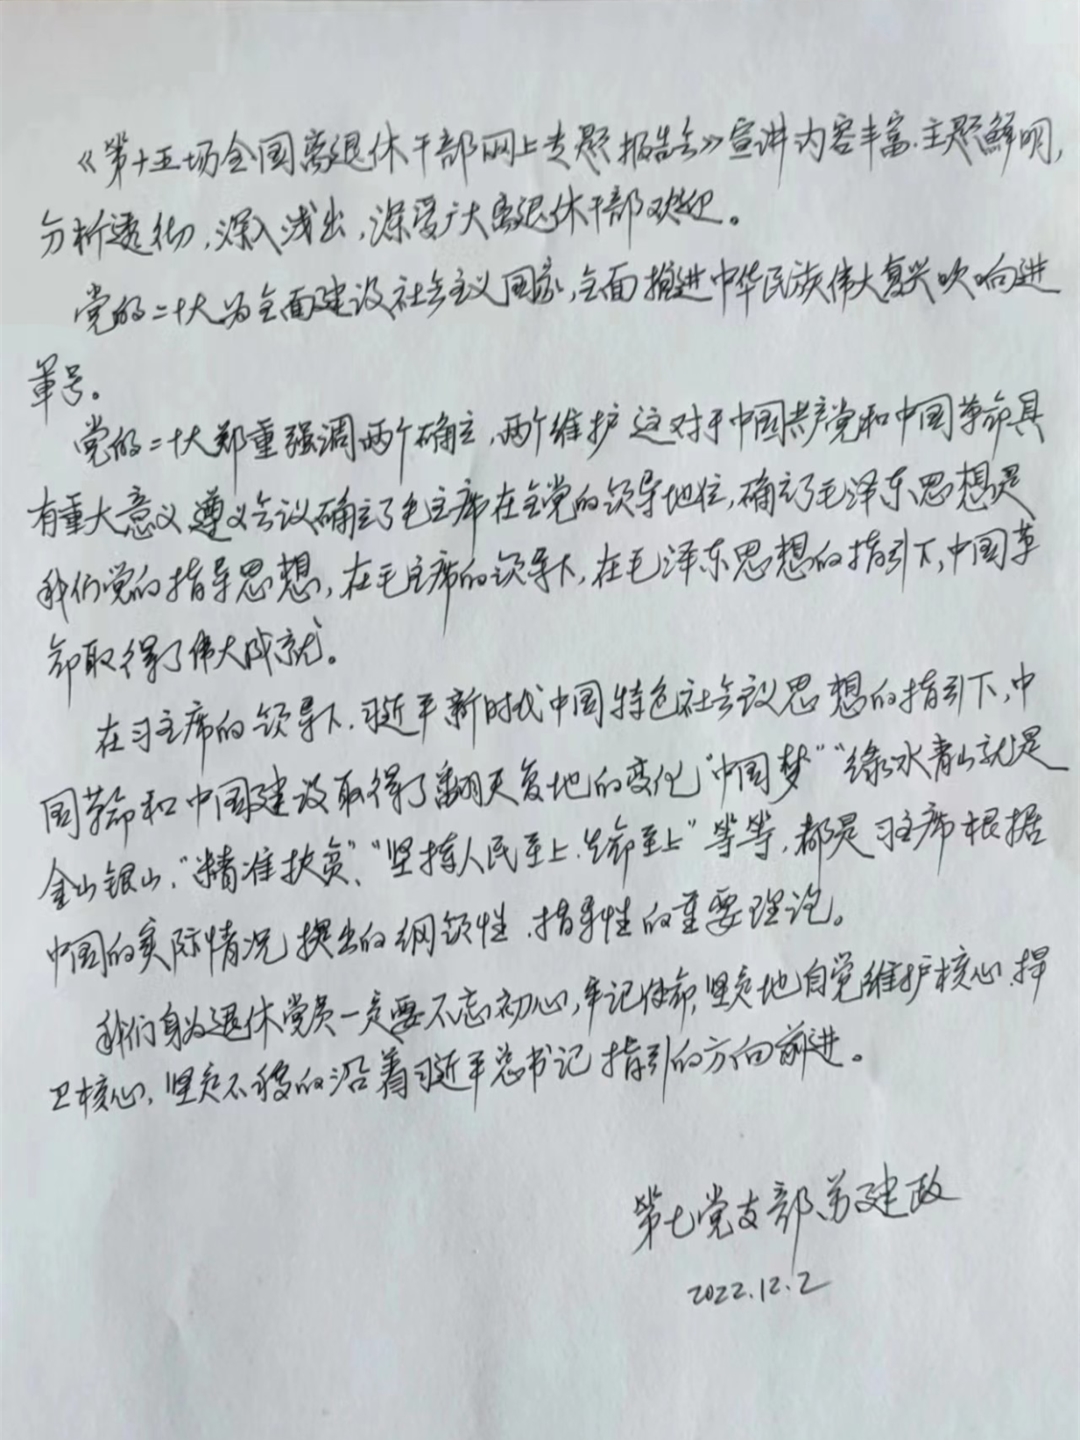 《第十五场全国离退休干部网上专题报告会》宣讲内容丰富.主题鲜明,
分析透彻,深入浅出,深受广大离退休干部欢迎。
党的二十大为全面建设社会主义国家,全面推进中华民族伟大复兴吹响进
军号。
党的二十大郑重强调两个确立,两个维护 这对于中国共产党和中国革命具
有重大意义 遵义会议确立了毛主席在全党的领导地位,确立了毛泽东思想是
我们党的指导思想,在毛主席的领导下,在毛泽东思想的指引下,中国革
命取得了伟大成就。
在习主席的领导下.习近平新时代中国特色社会议思想的指引下,中
国革命和中国建设取得了翻天复地的变化"中国梦""绿水青山就是
金山银山,"精准扶贫"、"坚持人民至上.生命至上"等等,都是习主席根据
中国的实际情况提出的纲领性.指导性的重要理论。
我们身为退休党员一定要不忘初心,牢记使命,坚定地自觉维护核心.捍
卫核心,坚定不移的沿着习近平总书记指引的方向前进。
第七党支部 建政
2022.12.2